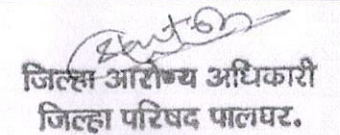 जिल्हा आरोग्य अधिकारी
जिल्हा परिषद पालघर.